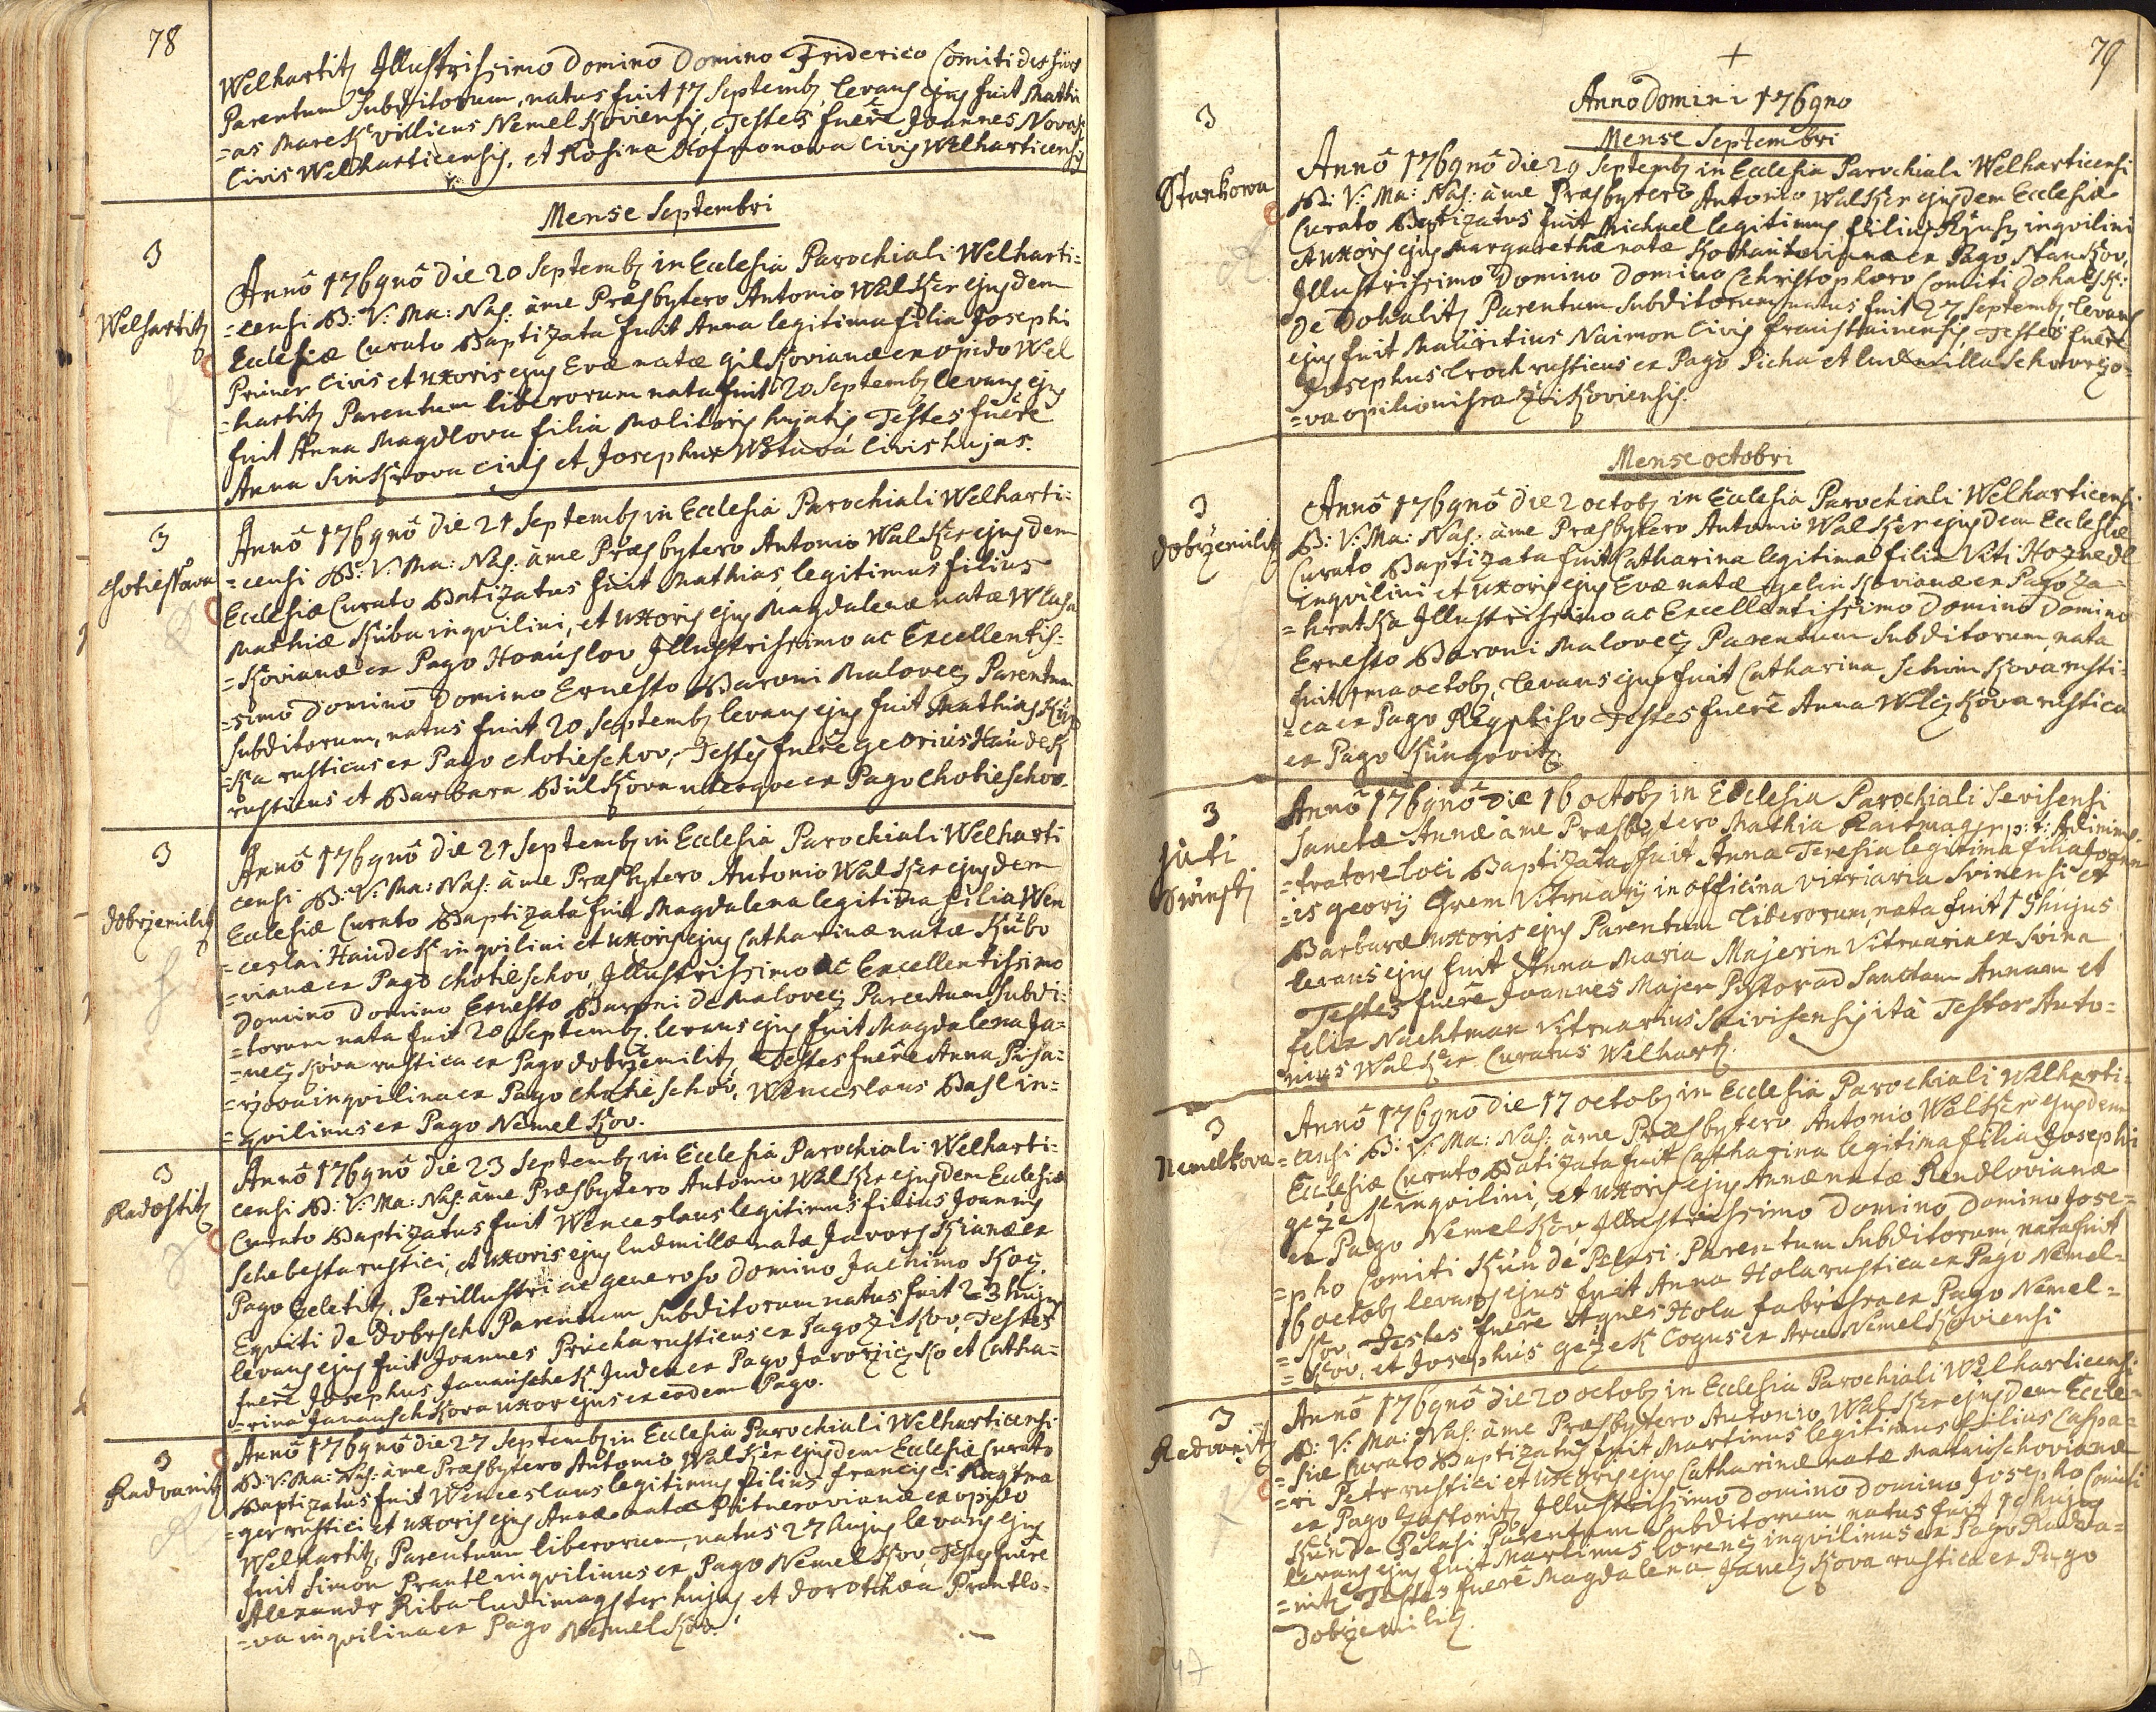 78
Welhartitz Illustrissimo Domino Domino Friderico Comiti
Parentum Subditorum, natus fuit 17 Septemb, levans ejus fuit Mathi
=as Marek villicus Nemelkoviensis, Testes fuere Joannes Novak
Civis Welharticensis, et Rosina Hofmonowa Civis Welharticensis
Mense Septembri
3
Welhartitz
Anno 1769no die 20 Septemb in Ecclesia Parochiali Welharti=
=censi B: V: Ma: Nas: a me Praesbytero Antonio Walker ejusdem
Ecclesiae Curato Baptizata fuit Anna legitima filia Josephi
Priner Civis et uxoris ejus Evae natae Gilkovianae ex opido Wel
=hartitz Parentum liberorum nata fuit 20 Septemb levans ejus
fuit Anna Magdlova filia Molitoris hujatis Testes fuere
Anna Sinkrova civis et Josephus Wotava Civis hujas.
3
Chotiessowa
Anno 1769no die 21 Septemb in Ecclesia Parochiali Welharti=
=censi B: V: Ma: Nas: a me Praesbytero Antonio Walker ejusdem
Ecclesiae Curato Batizatus fuit Mathias legitimus filius
Mathiae Kuba inqvilini, et uxoris ejus Magdalenae natae Wlasa
=kovianae ex Pago Hornuslov Illustrissimo ac Excellentis=
=simo Domino Domino Ernesto Baroni Malovec Parentum
subditorum, natus fuit 20 Septemb levans ejus fuit Mathias
=ka rusticus ex Pago Chotieschov, Testes fuere Georius Haudek
rusticus et Barbara Bulkova uterqve ex Pago Chotieschov.
3
Dobrzemilitz
Anno 1769no die 21 Septemb in Ecclesia Parochiali Welharti
censi B: V: Ma: Nas: a me Praesbytero Antonio Walker ejusdem
Ecclesiae Curato Baptizata fuit Magdalena legitima filia Wen
=ceslai Haudek inqvilini et uxoris ejus Catharinae natae Kubo
=vianae ex Pago Chotieschov, Illustrissimo ac Excellentissimo
Domino Domino Ernesto Baroni de Malovec Parentum subdi=
=torum nata fuit 20 Septemb. levans ejus fuit Magdalena Ja=
=neczkova rustica ex Pago Dobrzemilitz, Testes fuere Anna Pisa=
=rzova inqvilina ex Pago Chotieschov, Wenceslaus Basl in=
=qvilinus ex Pago Nemelkov.
3
Radostitz
Anno 1769no die 23 Septemb in Ecclesia Parochiali Welharti=
censi B: V: Ma: Nas: a me Praesbytero Antonio Walker ejusdem Ecclesiae
Curato Baptizatus fuit Wenceslaus legitimus filius Joannis
Schebesta rustici, et uxoris ejus Ludmillae natae Javorskianae ex
Pago Zeletitz. Perillustri ac generoso Domino Jachimo Kocz
Eqviti de Dobrsch Parentum Subditorum natus fuit 23 hujus
levans ejus fuit Joannes Pricha rusticus ex Pago Zikov, Testes
fuere Josephus Janauschek Judex ex Pago Javorziczko et Catha=
=rina Janauschkova uxor ejus ex eodem Pago.
3
Radvanitz
Anno 1769no die 27 Septemb in Ecclesia Parochiali Welharticensi
B: V: Ma: Nas: a me Praesbytero Antonio Walker ejusdem Ecclesiae Curato
Baptizatus fuit Wenceslaus legitimus filius Francisci
=ger rustici et uxoris ejus Annae natae Pitnerovianae ex opido
Welhartitz, Parentum liberorum, natus 27 hujus levans ejus
fuit Simon Prantl inqvilinus ex Pago Nemelkov, Testes fuere
Alexandr Riba ludimagster hujas, et Dorothea Prantlo=
=va inqvilina ex Pago Nemelkov.
79
Anno Domini 1769no
Mense Septembri
3
Stankowa
Anno 1769no die 29 Septemb in Ecclesia Parochiali Welharticensi
B: V: Ma: Nas: a me Praesbytero Antonio Walker ejusdem Ecclesiae
Curato Baptizatus fuit Michael legitimus filius inqvilini
et uxoris ejus Margarethae natae ex Pago Stankov,
Illustrissimo Domino Domino Christophoro Comiti Dohalsk:
de Dohalitz Parentum subditorum natus fuit 27 Septemb, levans
ejus fuit Mauritius Naimon Civis Fraustainensis, Testes fuere
Josephus Croch rusticus ex Pago Picha et Ludmilla Schovrzo=
=va opilionissa Zikoviensis.
Mense octobri
3
Dobrzemilitz
Anno 1769no die 2 octob in Ecclesia Parochiali Welharticensi
B: V: Ma: Nas: a me Praesbytero Antonio Walker ejusdem Ecclesiae
Curato Baptizata fuit Catharina legitima filia Viti Hoznedl
Inqvilini et uxoris ejus Evae natae Jelinkovianae ex Pago Za=
=hratka Illustrissimo ac Excellentissimo Domino Domino
Ernesto Baroni Malovec, Parentum Subditorum, nata
fuit 1ma octob, levans ejus fuit Catharina Schimkova rusti=
=ca ex Pago Testes fuere Anna Welczkova rustica
ex Pago Kungovitz.
3
Huti
Swinsti
Anno 1769no die 16 octob in Ecclesia Parochiali Sevisensi
Sanctae Annae a me Praesbytero Mathia p: t: Adminis=
=tratore loci Baptizata fuit Anna Teresia legitima filia Joann
=is Georij Grem Vitruarij in officina vitriaria Svinensi et
Barbarae uxoris ejus Parentum liberorum, nata fuit 15 hujus
levans ejus fuit Anna Maria Majerin Vitruaria ex Svina
Testes fuere Joannes Majer Pistor ad Sanctam Annam et
Felix Nachtman Vitruarius ita Testor Anto=
nius Walker Curatus Welhart.
3
Nemelkova
Anno 1769no die 17 octob in Ecclesia Parochiali Welharti=
=censi B: V: Ma: Nas: a me Praesbytero Antonio Walker ejusdem
Ecclesiae Curato Batizata fuit Catharina legitima filia Josephi
Gezek inqvilini, et uxoris ejus Annae natae Rendlovianae
ex Pago Nemelkov, Illustrissimo Domino Domino Jose=
=pho Comiti Kun de Pelasi Parentum Subditorum, nata fuit
16 octob levans ejus fuit Anna Hola rustica ex Pago Nemel=
=kov, Testes fuere Agnes Hola fabrissa ex Pago Nemel=
=kov, et Josephus Gezek Coqus ex Arce Nemelkoviensi
3
Radvanitz
Anno 1769no die 20 octob in Ecclesia Parochiali Welharticensi
B: V: Ma: Nas: a me Praesbytero Antonio Walker ejusdem Eccle=
=siae Curato Baptizatus fuit Martinus legitimus filius Caspa=
=ri Petr rustici et uxoris ejus Catharinae natae Matauschovianae
ex Pago Illustrissimo Domino Domino Josepho Comiti
Kun de Pelasi Parentum Subditorum natus fuit 19 hujus
levans ejus fuit Martinus Lorenc inqvilinus ex Pago Radva=
=nitz Testes fuere Magdalena Janeczkova rustica ex Pago
Dobrzemilitz.
147